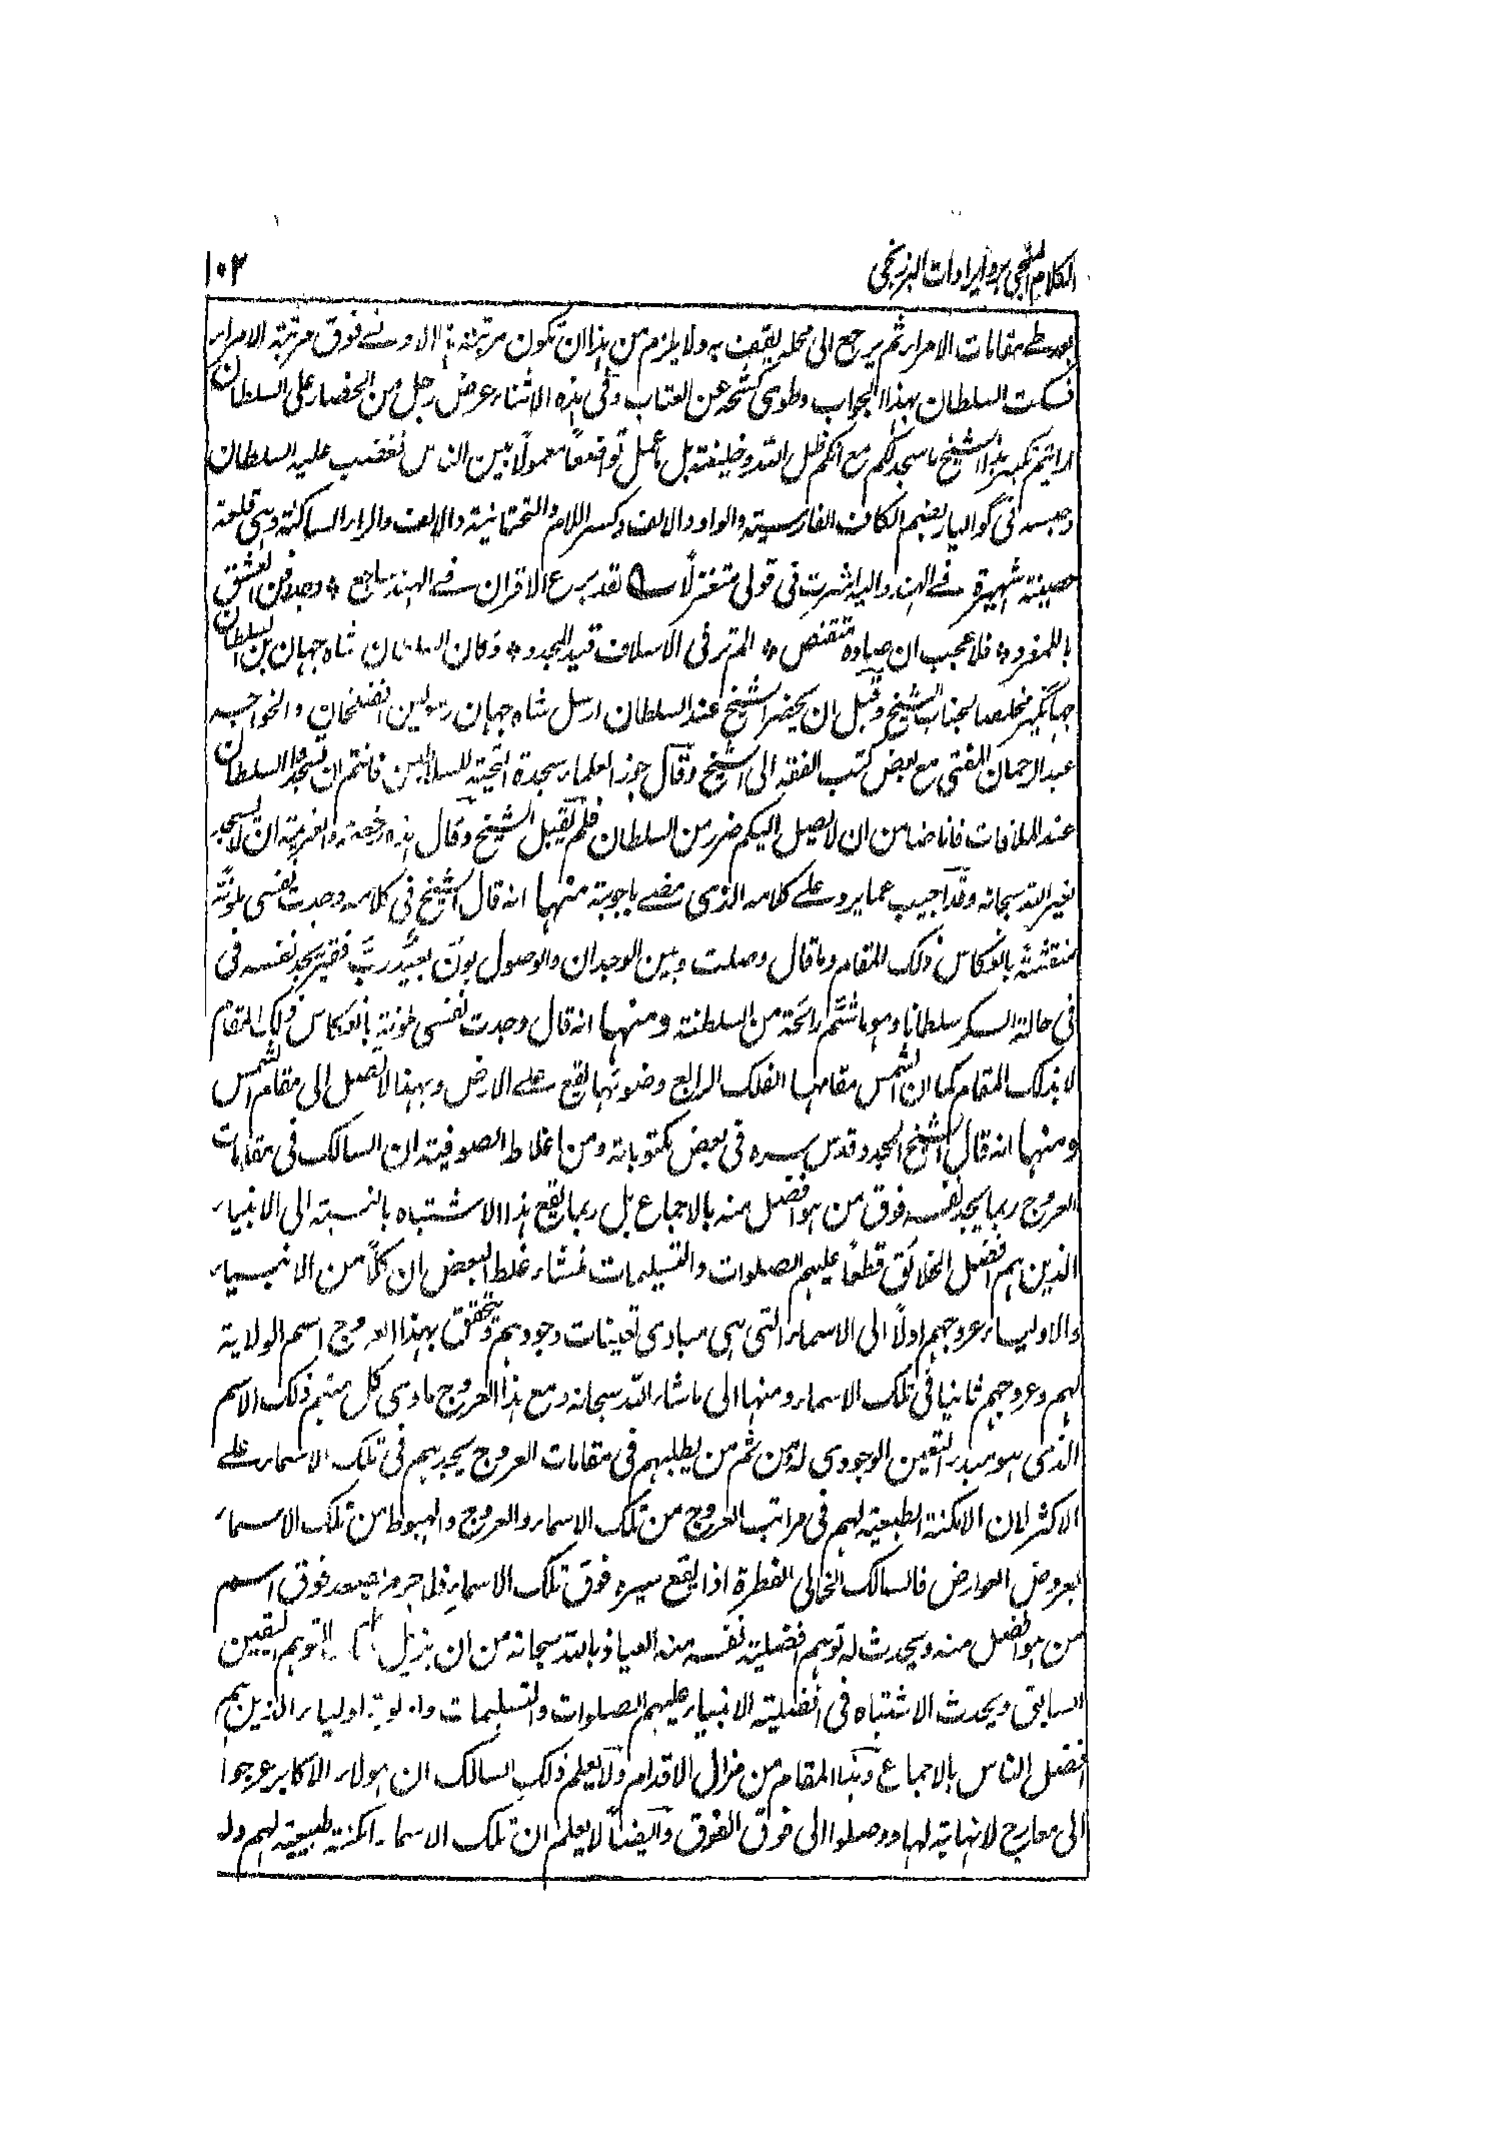 الكلام المنجي برد ايرادات البرزنجي
١٠٢
بعد طے مقامات الامراء ثم يرجع الى محله يقف به ولا يلزم من هذا ان تكون مرتبة هذا الادنے فوق مرتبة الامراء
فسكت السلطان بهذا الجواب وطوى كشحه عن العتاب وفى هذه الاثناء عرض رجل من الحضار على السلطان
ارايتم تكبر هذا الشيخ ما سجد لكم مع انكم ظل الله وخليفته بل ما عمل تواضعًا معمولًا بين الناس فغضب عليه السلطان
وحبسه فى گواليار بضم الكاف الفارسية والواو والالف وكسر اللام والتحتانية والالف والراء الساكنة وهى قلعة
حصينة شهيرة فے الهند واليه اشرت فى قولى متغزلًا لقد برع الاقران فے الهند ساجع * وجدد فن العشق
باللمغرد * فلا عجب ان صاده متقنص * الم تر فى الاسلاف قيد المجدد * وكان السلطان شاه جهان بن السلطان
جهانگير مخلصا لجناب الشيخ وقبل ان يحضر الشيخ عند السلطان ارسل شاه جهان رسولين افضلخان والخواجه
عبد الرحمان المفتى مع بعض كتب الفقه الى الشيخ وقال جوز العلماء سجدة التحية للسلاطين فانتم ان تسجدوا السلطان
عند الملاقات فانا ضامن ان لا يصل اليكم ضرر من السلطان فلم يقبل الشيخ وقال هذه رخصة والعزيمة ان لا يسجد
لغير الله سبحانه وقد اجيب عما يرد علے كلامه الذى مضے باجوبة منها انه قال الشيخ فى كلامه وجدت نفسى ملونة
منقشة بانعكاس ذلك المقام وما قال وصلت وبين الوجدان والوصول بون بعيد رب فقير يجد نفسه فى
فى حالة السكر سلطانا وهو ما شم رائحة من السلطنة ومنها انه قال وجدت نفسى ملونة بانعكاس ذلك المقام
لا بذلك المقام كما ان الشمس مقامها الفلك الرابع وضوئها يقع علے الارض وبهذا لا تصل الى مقام الشمس
ومنها انه قال الشيخ المجدد قدس سره فى بعض مكتوباته ومن اغلاط الصوفية ان السالك فى مقامات
العروج ربما يجد نفسه فوق من هو افضل منه بالاجماع بل ربما يقع هذا الاشتباه بالنسبة الى الانبياء
الذين هم افضل الخلائق قطعًا عليهم الصلوات والتسليمات فمنشاء غلط البعض ان كلًا من الانبياء
والاولياء عروجهم اولًا الى الاسماء التى هى مبادى تعينات وجودهم وتحقق بهذا العروج اسم الولاية
لهم وعروجهم ثانيا فى تلك الاسماء ومنها الى ما شاء الله سبحانه ومع هذا العروج ماوى كل منهم ذلك الاسم
الذى هو مبدء التعين الوجودى له ومن ثم من يطلبهم فى مقامات العروج يجدهم فى تلك الاسماء علے
الاكثر لان الامكنة الطبعية لهم فى مراتب العروج من تلك الاسماء والعروج والهبوط من تلك الاسماء
بعروض العوارض فالسالك العالى الفطرة اذا يقع سيره فوق تلك الاسماء فلا جرم يصعد فوق اسم
من هو افضل منه ويحدث له توهم افضلية نفسه منه العياذ بالله سبحانه من ان يزيل التوهم اليقين
السابق ويحدث الاشتباه فى افضلية الانبياء عليهم الصلوات والتسليمات واولوية اولياء الذين هم
افضل الناس بالاجماع وهذا المقام من مزال الاقدام ولا يعلم ذلك السالك ان هولاء الاكابر عرجوا
الى معارج لا نهاية لها ووصلوا الى فوق الفوق وايضًا لا يعلم ان تلك الاسماء امكنة طبيعية لهم وله